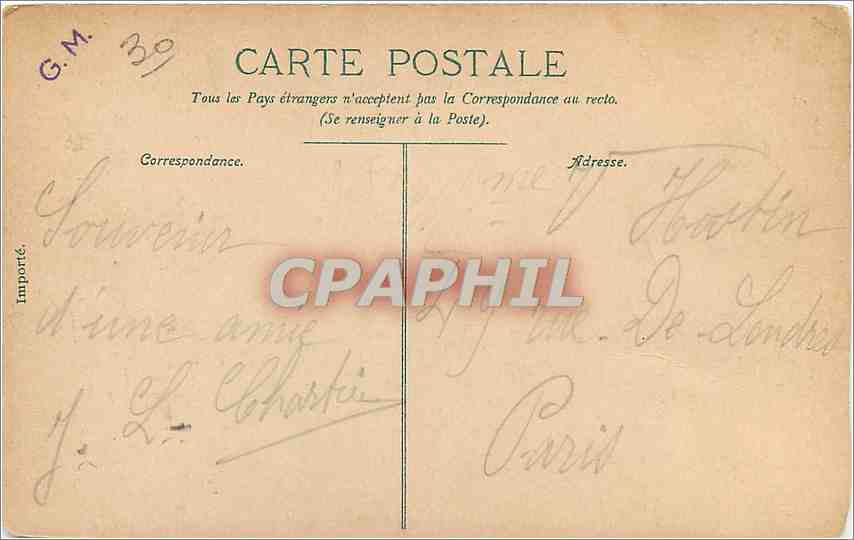 G. M.
30
CARTE POSTALE
Tous les Pays étrangers n'acceptent pas la Correspondance au recto.
(Se renseigner à la Poste).
Correspondance.
Adresse.
Importé.
Souvenir
d'une amie
J. L. Chartier
me
Hostin
49 rue De Londres
Paris
CPAPHIL